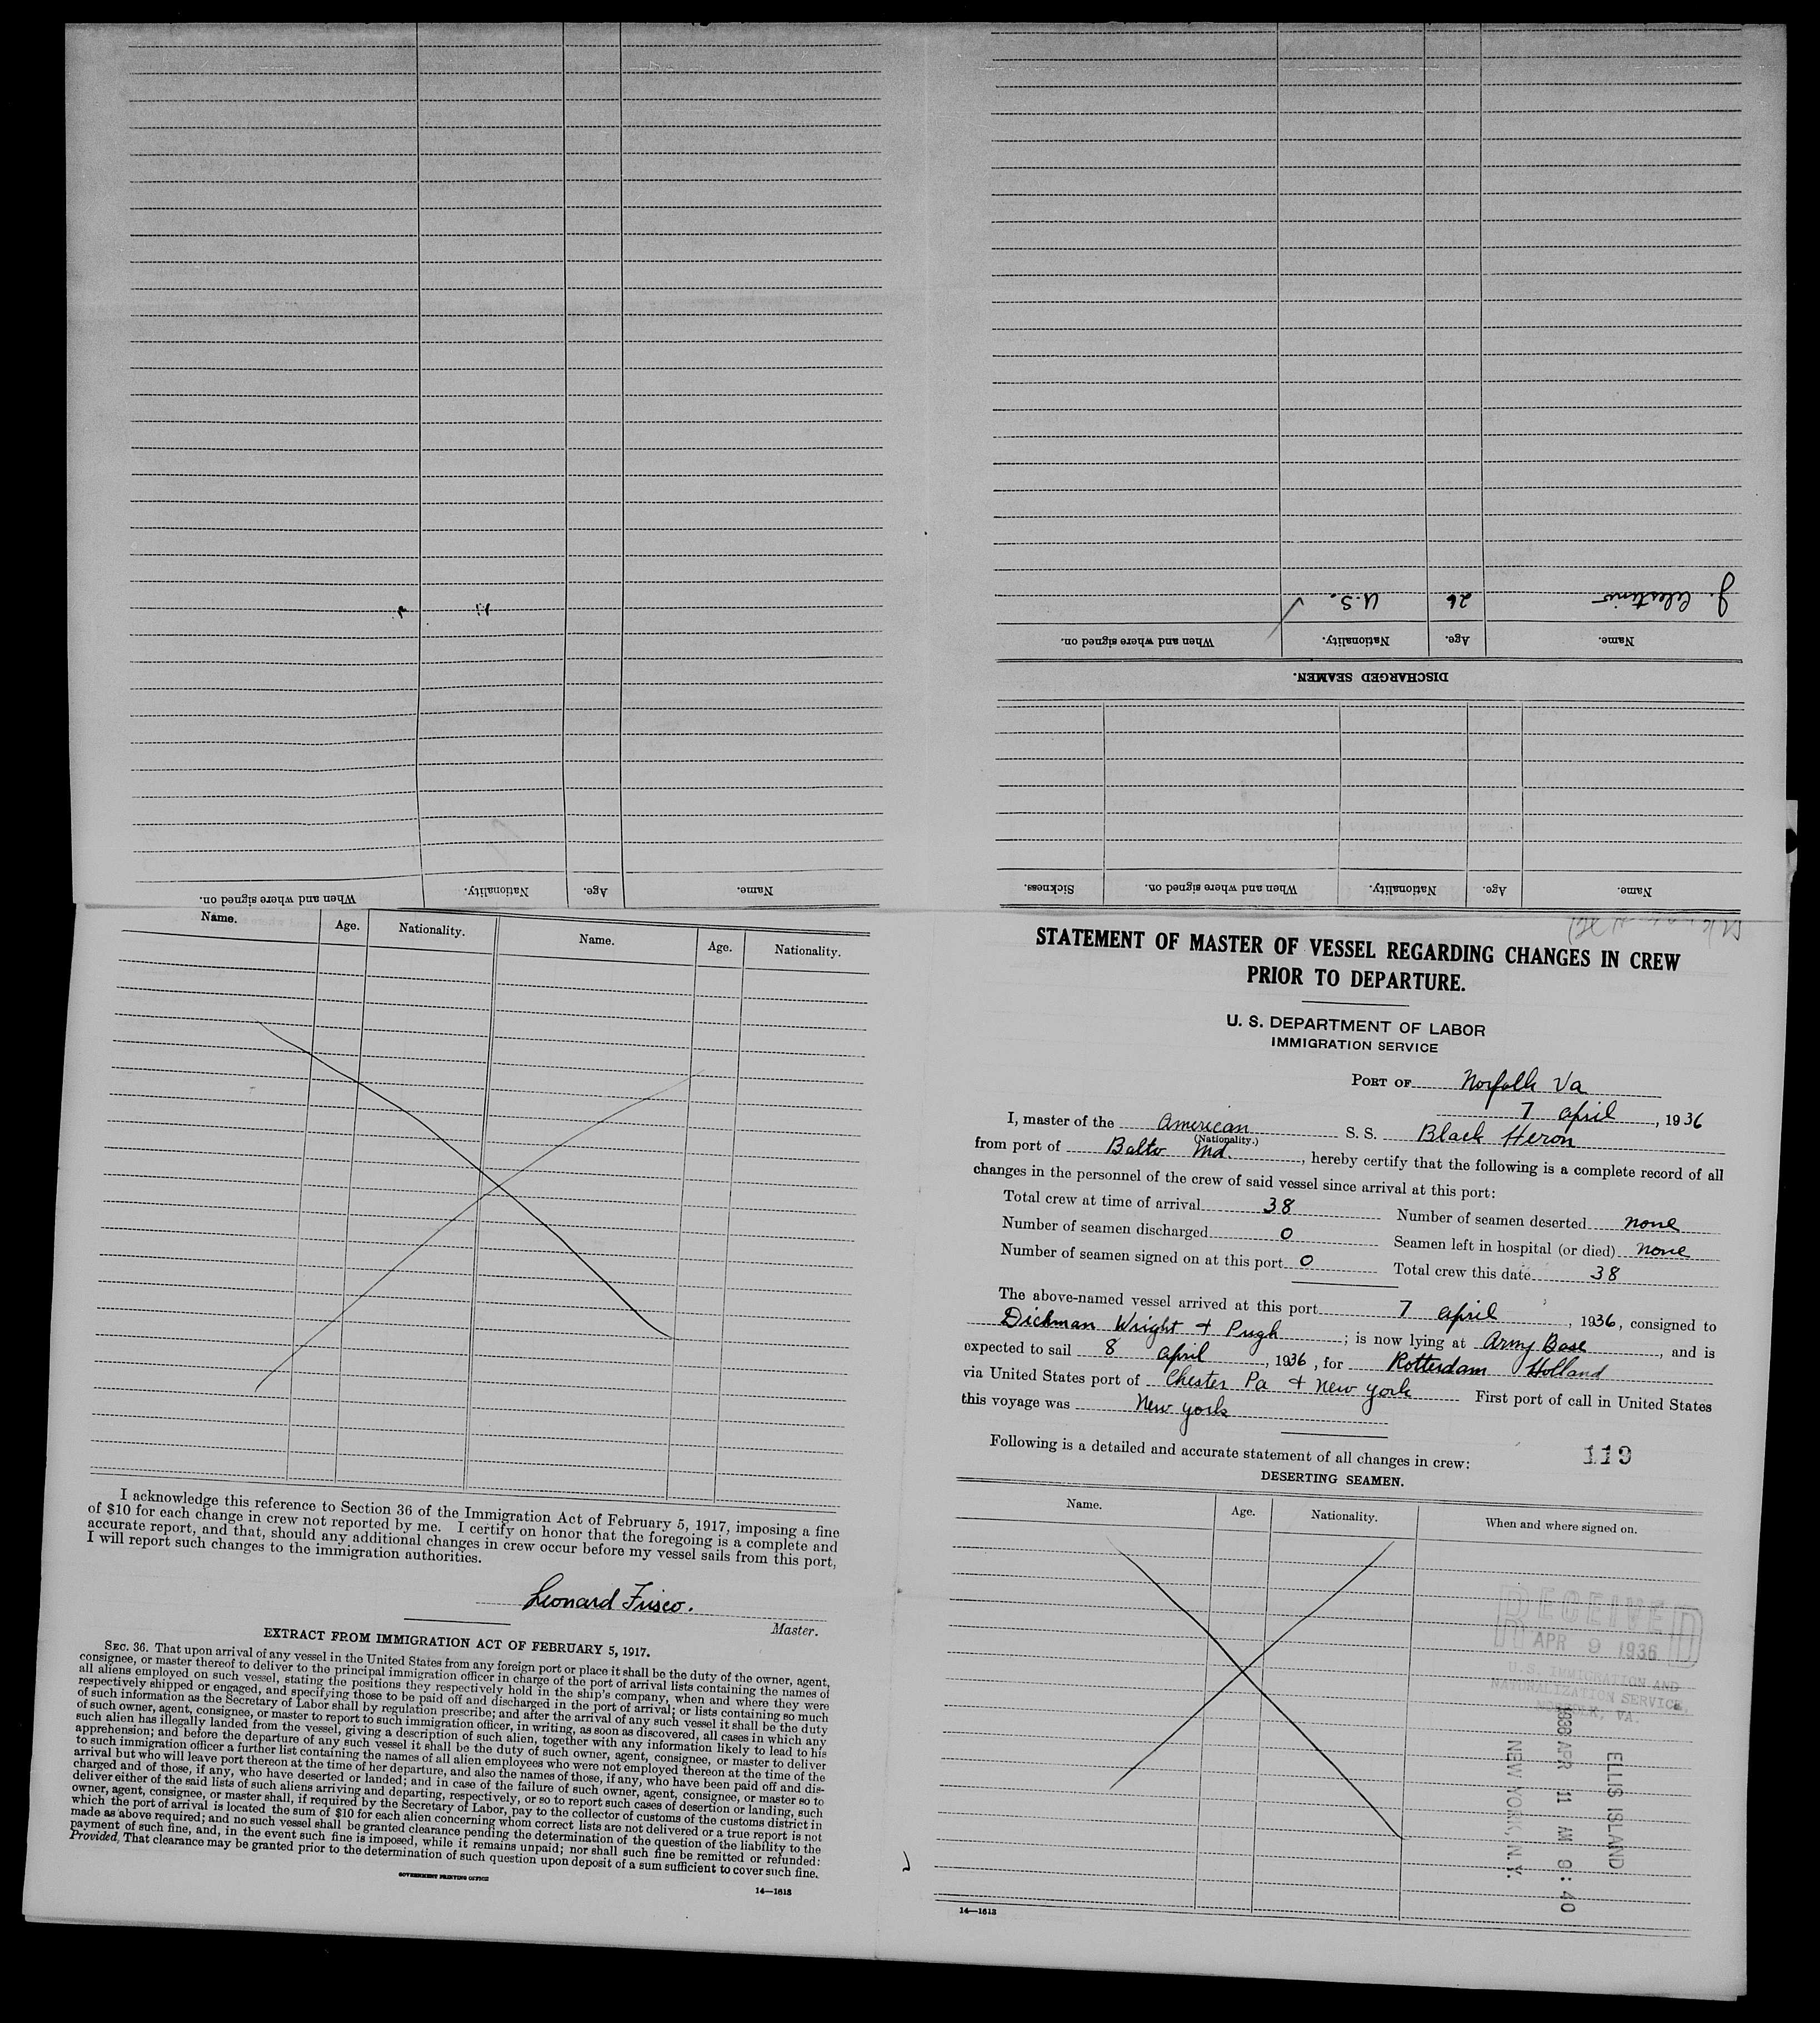 When and where signed on. Nationality. Age. Name.
J. Celestino 26 U.S. ✓
Name. Age. Nationality. When and where signed on.
DISCHARGED SEAMEN.
Name. Age. Nationality. When and where signed on. Sickness.
Name. Age. Nationality. Name. Age. Nationality.
I acknowledge this reference to Section 36 of the Immigration Act of February 5, 1917, imposing a fine
of $10 for each change in crew not reported by me. I certify on honor that the foregoing is a complete and
accurate report, and that, should any additional changes in crew occur before my vessel sails from this port,
I will report such changes to the immigration authorities.
Leonard Frisco.
Master.
EXTRACT FROM IMMIGRATION ACT OF FEBRUARY 5, 1917.
SEC. 36. That upon arrival of any vessel in the United States from any foreign port or place it shall be the duty of the owner, agent,
consignee, or master thereof to deliver to the principal immigration officer in charge of the port of arrival lists containing the names of
all aliens employed on such vessel, stating the positions they respectively hold in the ship's company, when and where they were
respectively shipped or engaged, and specifying those to be paid off and discharged in the port of arrival; or lists containing so much
of such information as the Secretary of Labor shall by regulation prescribe; and after the arrival of any such vessel it shall be the duty
of such owner, agent, consignee, or master to report to such immigration officer, in writing, as soon as discovered, all cases in which any
such alien has illegally landed from the vessel, giving a description of such alien, together with any information likely to lead to his
apprehension; and before the departure of any such vessel it shall be the duty of such owner, agent, consignee, or master to deliver
to such immigration officer a further list containing the names of all alien employees who were not employed thereon at the time of the
arrival but who will leave port thereon at the time of her departure, and also the names of those, if any, who have been paid off and dis-
charged and of those, if any, who have deserted or landed; and in case of the failure of such owner, agent, consignee, or master so to
deliver either of the said lists of such aliens arriving and departing, respectively, or so to report such cases of desertion or landing, such
owner, agent, consignee, or master shall, if required by the Secretary of Labor, pay to the collector of customs of the customs district in
which the port of arrival is located the sum of $10 for each alien concerning whom correct lists are not delivered or a true report is not
made as above required; and no such vessel shall be granted clearance pending the determination of the question of the liability to the
payment of such fine, and, in the event such fine is imposed, while it remains unpaid; nor shall such fine be remitted or refunded:
Provided, That clearance may be granted prior to the determination of such question upon deposit of a sum sufficient to cover such fine.
GOVERNMENT PRINTING OFFICE
14—1613
STATEMENT OF MASTER OF VESSEL REGARDING CHANGES IN CREW
PRIOR TO DEPARTURE.
U. S. DEPARTMENT OF LABOR
IMMIGRATION SERVICE
PORT OF Norfolk Va
7 april, 1936
I, master of the American S. S. Black Heron
(Nationality.)
from port of Balto Md., hereby certify that the following is a complete record of all
changes in the personnel of the crew of said vessel since arrival at this port:
Total crew at time of arrival 38 Number of seamen deserted none
Number of seamen discharged 0 Seamen left in hospital (or died) none
Number of seamen signed on at this port 0 Total crew this date 38
The above-named vessel arrived at this port 7 april, 1936, consigned to
Dickman Wright + Pugh; is now lying at Army Base, and is
expected to sail 8 april, 1936, for Rotterdam Holland
via United States port of Chester Pa + New york First port of call in United States
this voyage was New york
Following is a detailed and accurate statement of all changes in crew:
119
DESERTING SEAMEN.
Name. Age. Nationality. When and where signed on.
RECEIVED
APR 9 1936
U.S. IMMIGRATION AND
NATURALIZATION SERVICE,
VA.
ELLIS ISLAND
1936 APR 11 AM 9:40
NEW YORK, N. Y.
14—1613